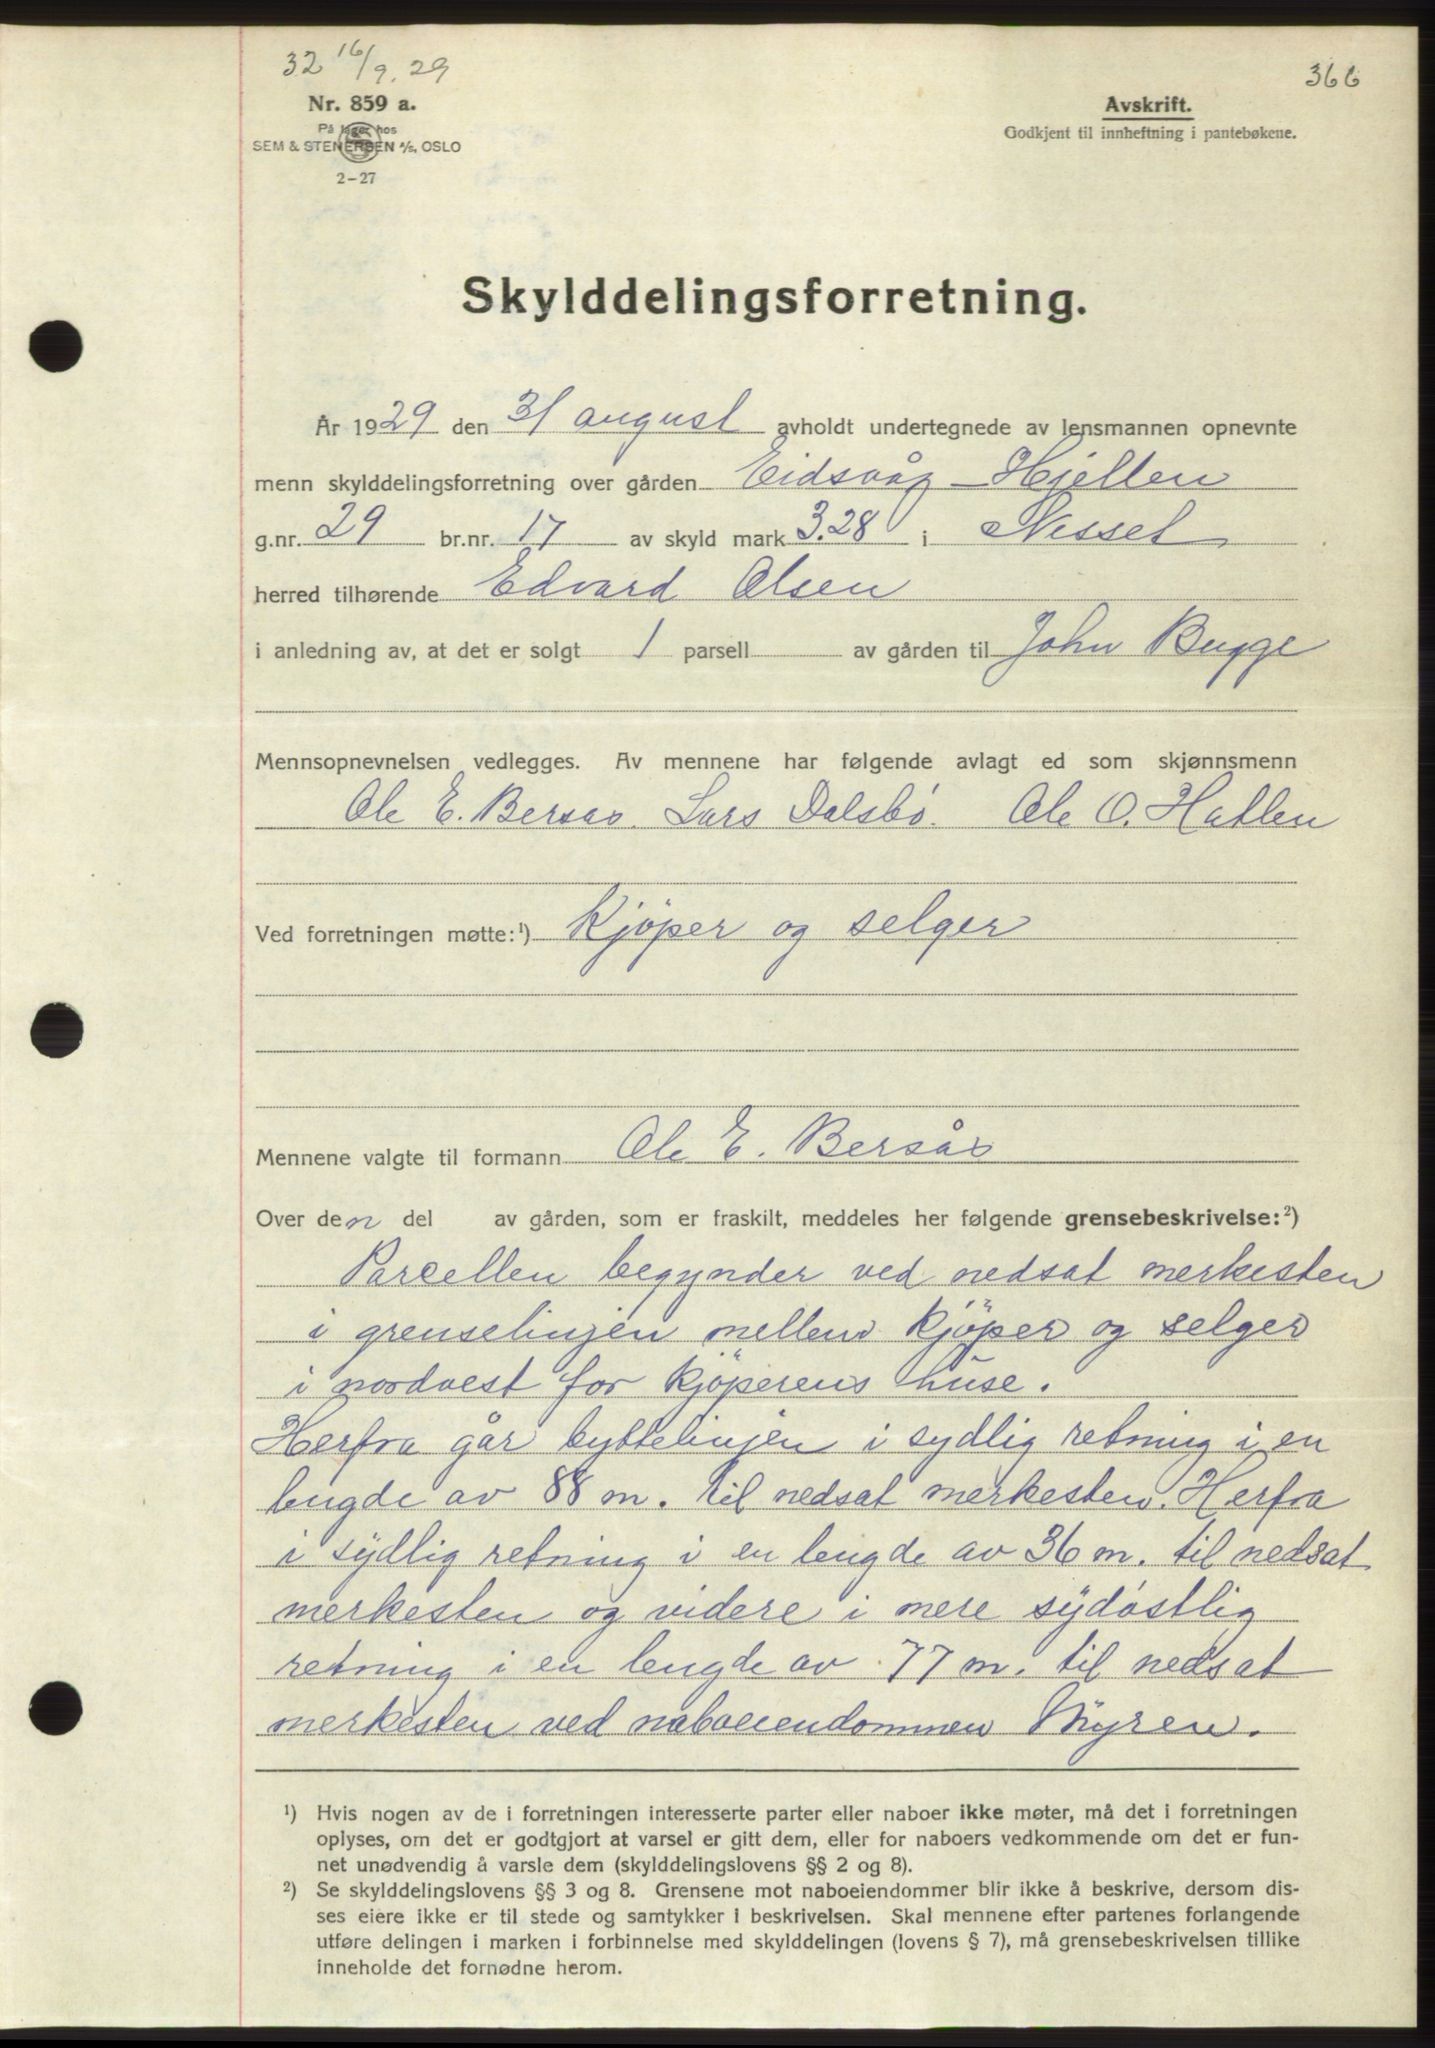 32 16/9.29
366
Nr. 859 a.
På lager hos
SEM & STENERSEN A/S, OSLO
2-27
Avskrift.
Godkjent til innheftning i pantebøkene.
Skylddelingsforretning.
År 1929 den 31 august avholdt undertegnede av lensmannen opnevnte
menn skylddelingsforretning over gården Eidsvåg - Hjellen
g.nr. 29 br.nr. 17 av skyld mark 3.28 i Nesset
herred tilhørende Edvard Olsen
i anledning av, at det er solgt 1 parsell av gården til John Bugge
Mennsopnevnelsen vedlegges. Av mennene har følgende avlagt ed som skjønnsmenn
Ole E. Bersås. Lars Dalsbø. Ole O. Hatlen
Ved forretningen møtte:¹) Kjöper og selger
Mennene valgte til formann Ole E. Bersås
Over den del av gården, som er fraskilt, meddeles her følgende grensebeskrivelse:²)
Parcellen begynder ved nedsat merkesten
i grenselinjen mellem kjöper og selger
i nordvest for kjöperens huse.
Herfra går byttelinjen i sydlig retning i en
lengde av 88 m. til nedsat merkesten. Herfra
i sydlig retning i en lengde av 36 m. til nedsat
merkesten og videre i mere sydöstlig
retning i en lengde av 77 m. til nedsat
merkesten ved naboeiendommen Myren.
¹) Hvis nogen av de i forretningen interesserte parter eller naboer ikke møter, må det i forretningen
oplyses, om det er godtgjort at varsel er gitt dem, eller for naboers vedkommende om det er fun-
net unødvendig å varsle dem (skylddelingslovens §§ 2 og 8).
²) Se skylddelingslovens §§ 3 og 8. Grensene mot naboeiendommer blir ikke å beskrive, dersom dis-
ses eiere ikke er til stede og samtykker i beskrivelsen. Skal mennene efter partenes forlangende
utføre delingen i marken i forbinnelse med skylddelingen (lovens § 7), må grensebeskrivelsen tillike
inneholde det fornødne herom.